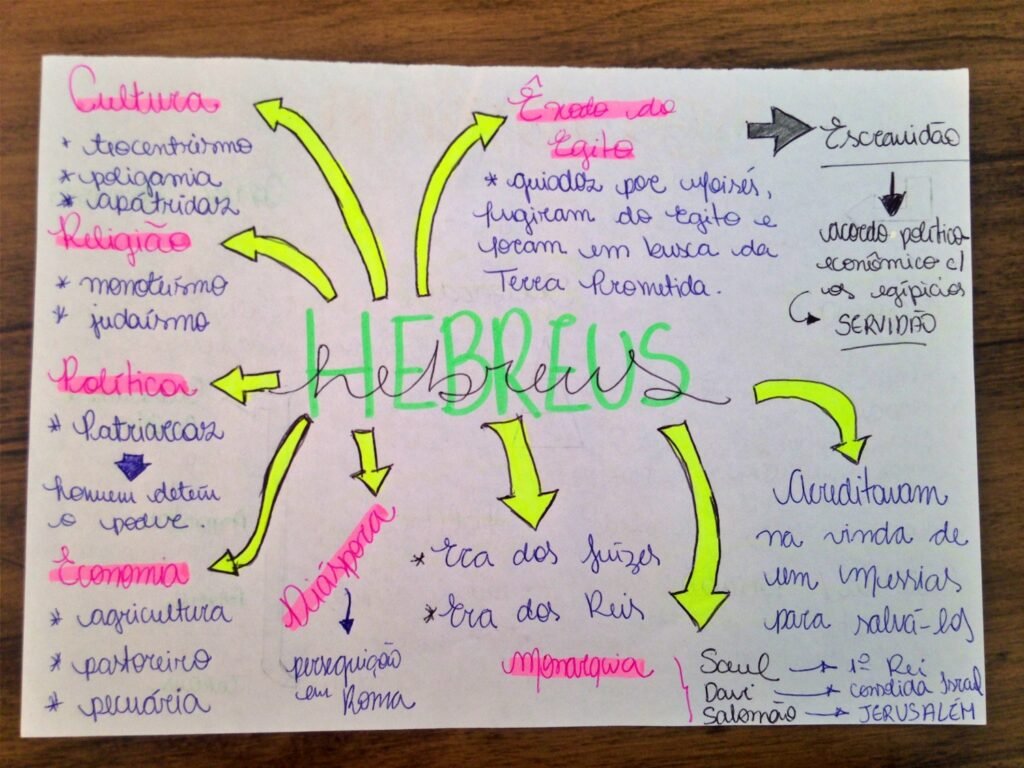 Cultura
* teocentrismo
* poligamia
* apátridas
Religião
* monoteísmo
* judaísmo
Política
* Patriarcas
homem detém
o poder
Economia
* agricultura
* pastoreiro
* pecuária
Êxodo do
Egito
* guiados por Moisés,
fugiram do Egito e
foram em busca da
Terra Prometida.
Escravidão
acordo político
econômico c/
os egípicios
SERVIDÃO
HEBREUS
hebreus
Diáspora
perseguição
em Roma
* Era dos Juízes
* Era dos Reis
Monarquia
Saul → 1º Rei
Davi → consolida Israel
Salomão → JERUSALÉM
Acreditavam
na vinda de
um Messias
para salvá-los